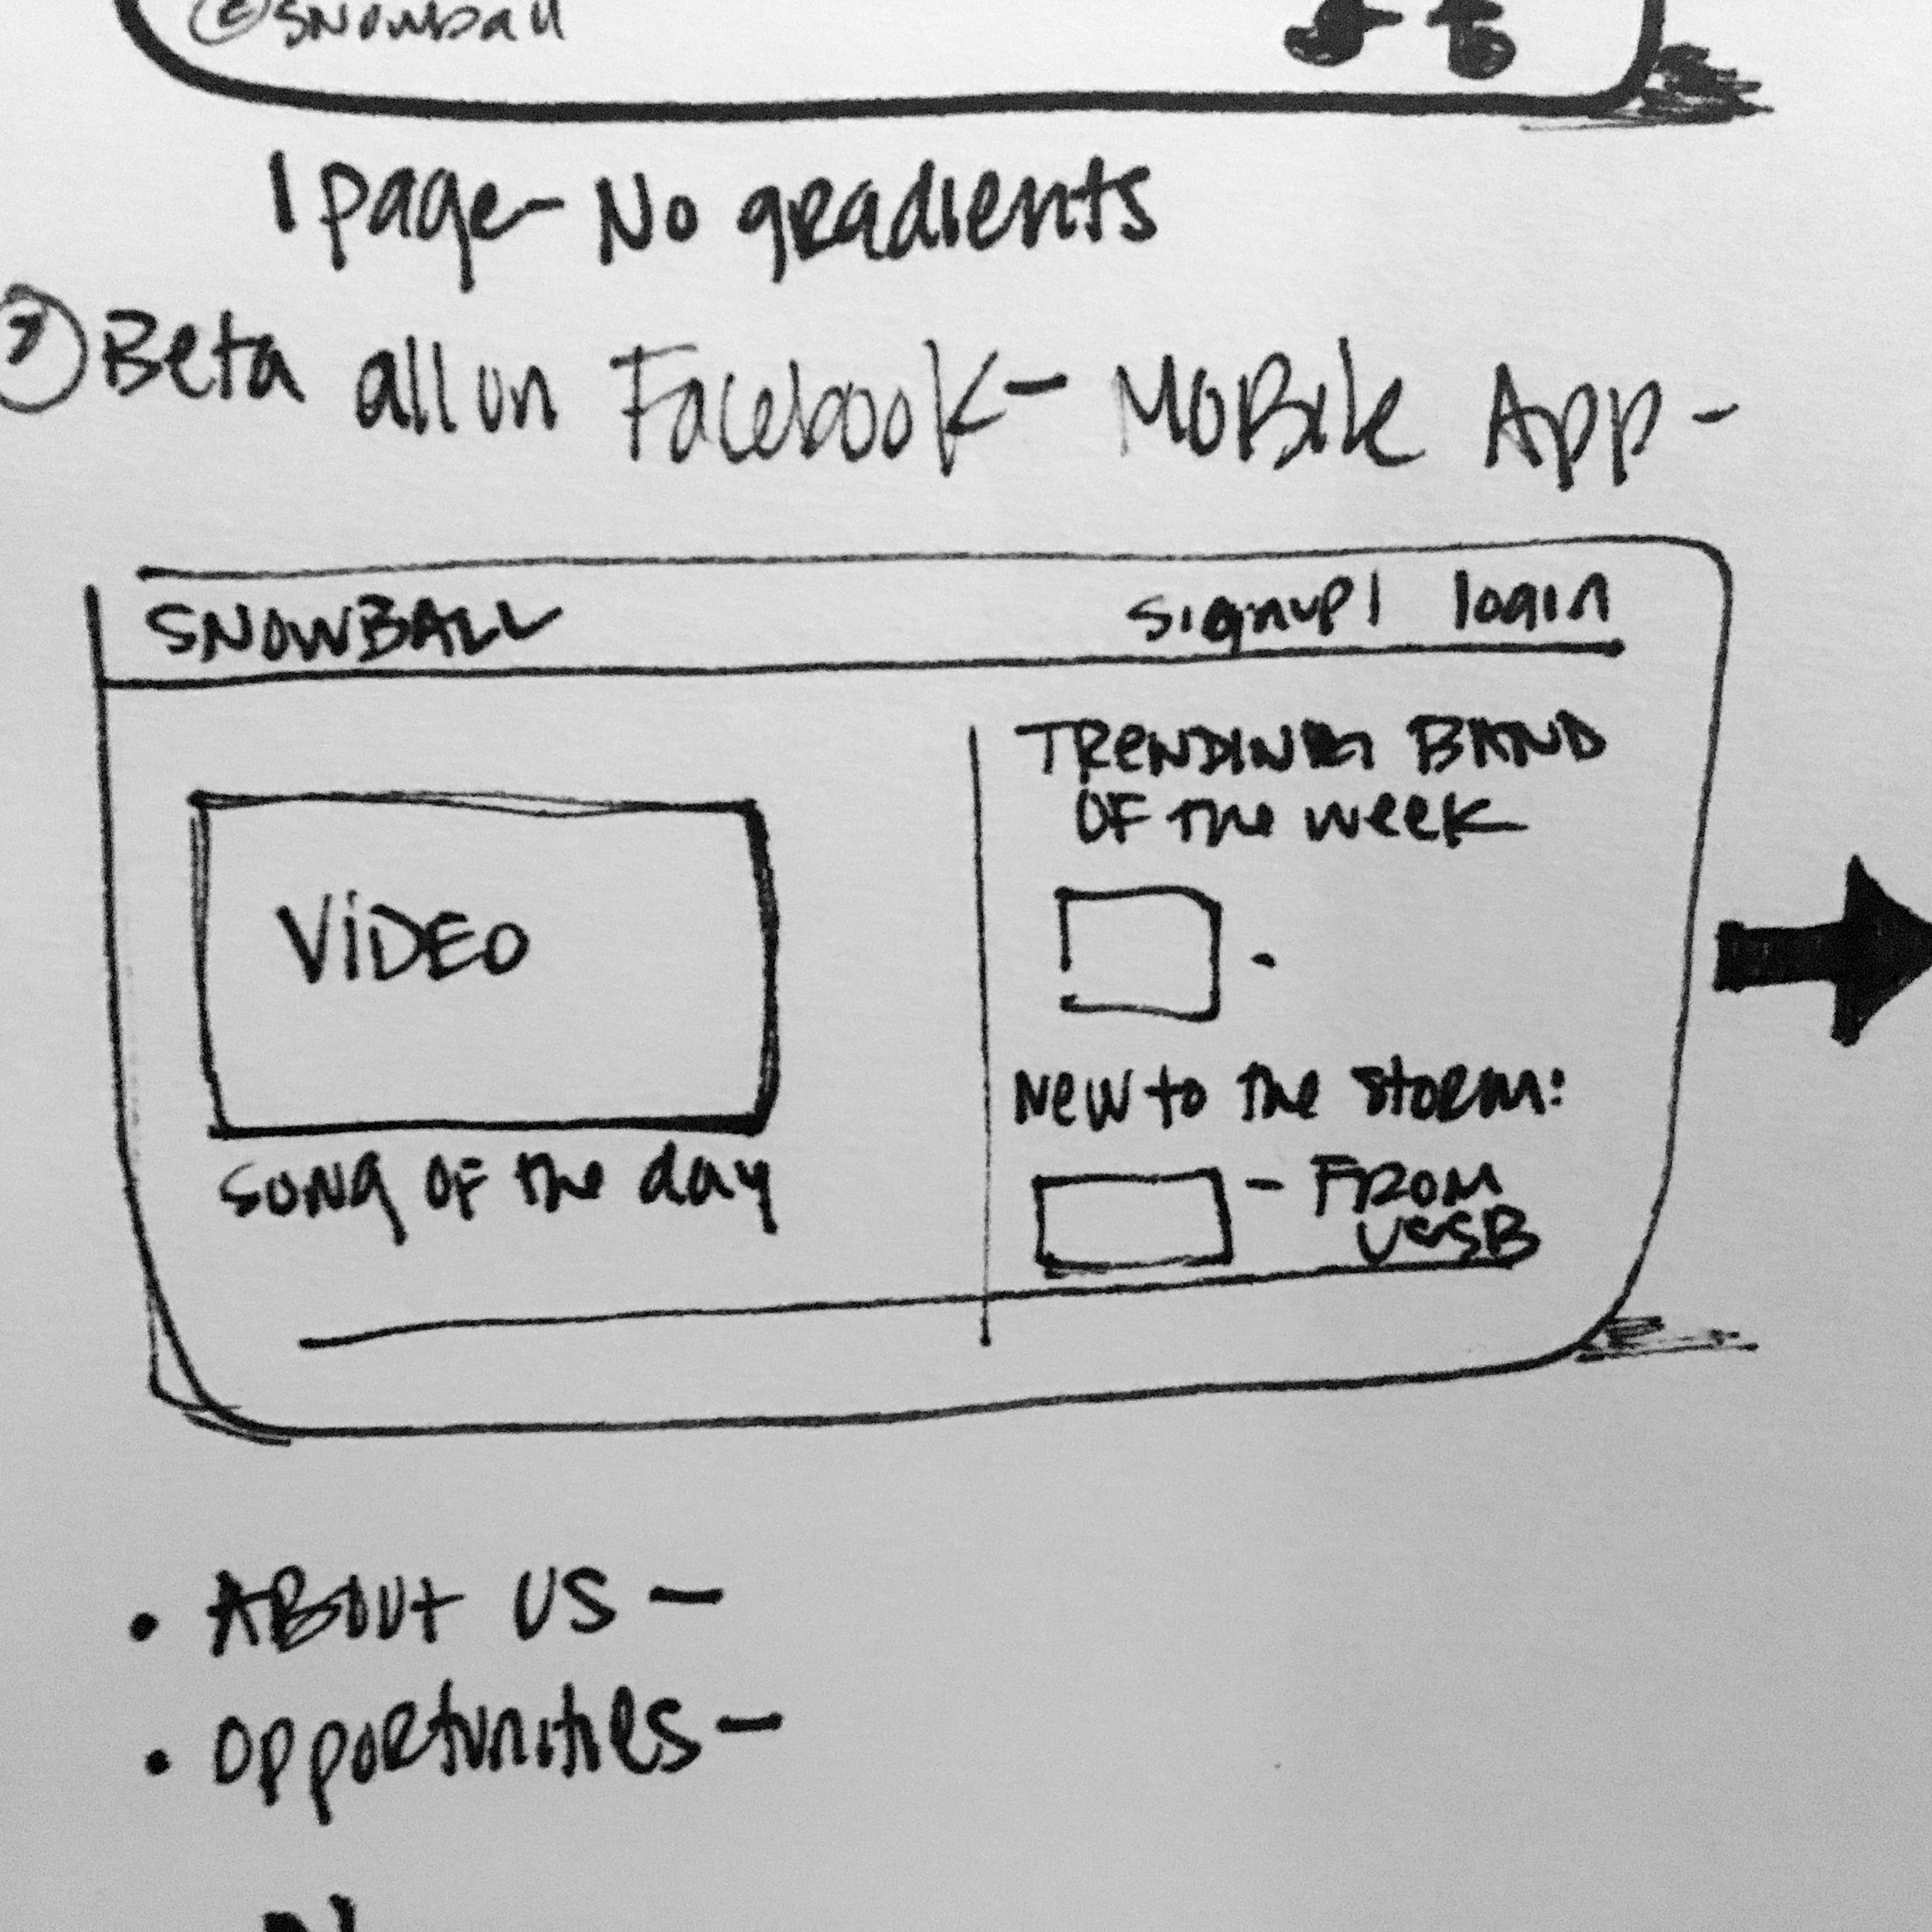 ©snowball
1 page - No gradients
Beta all on Facebook - Mobile App -
SNOWBALL
signup | login
TRENDING BAND
OF the week
VIDEO
New to the storm:
song of the day
- FROM
UCSB
• ABOUT US -
• Opportunities -